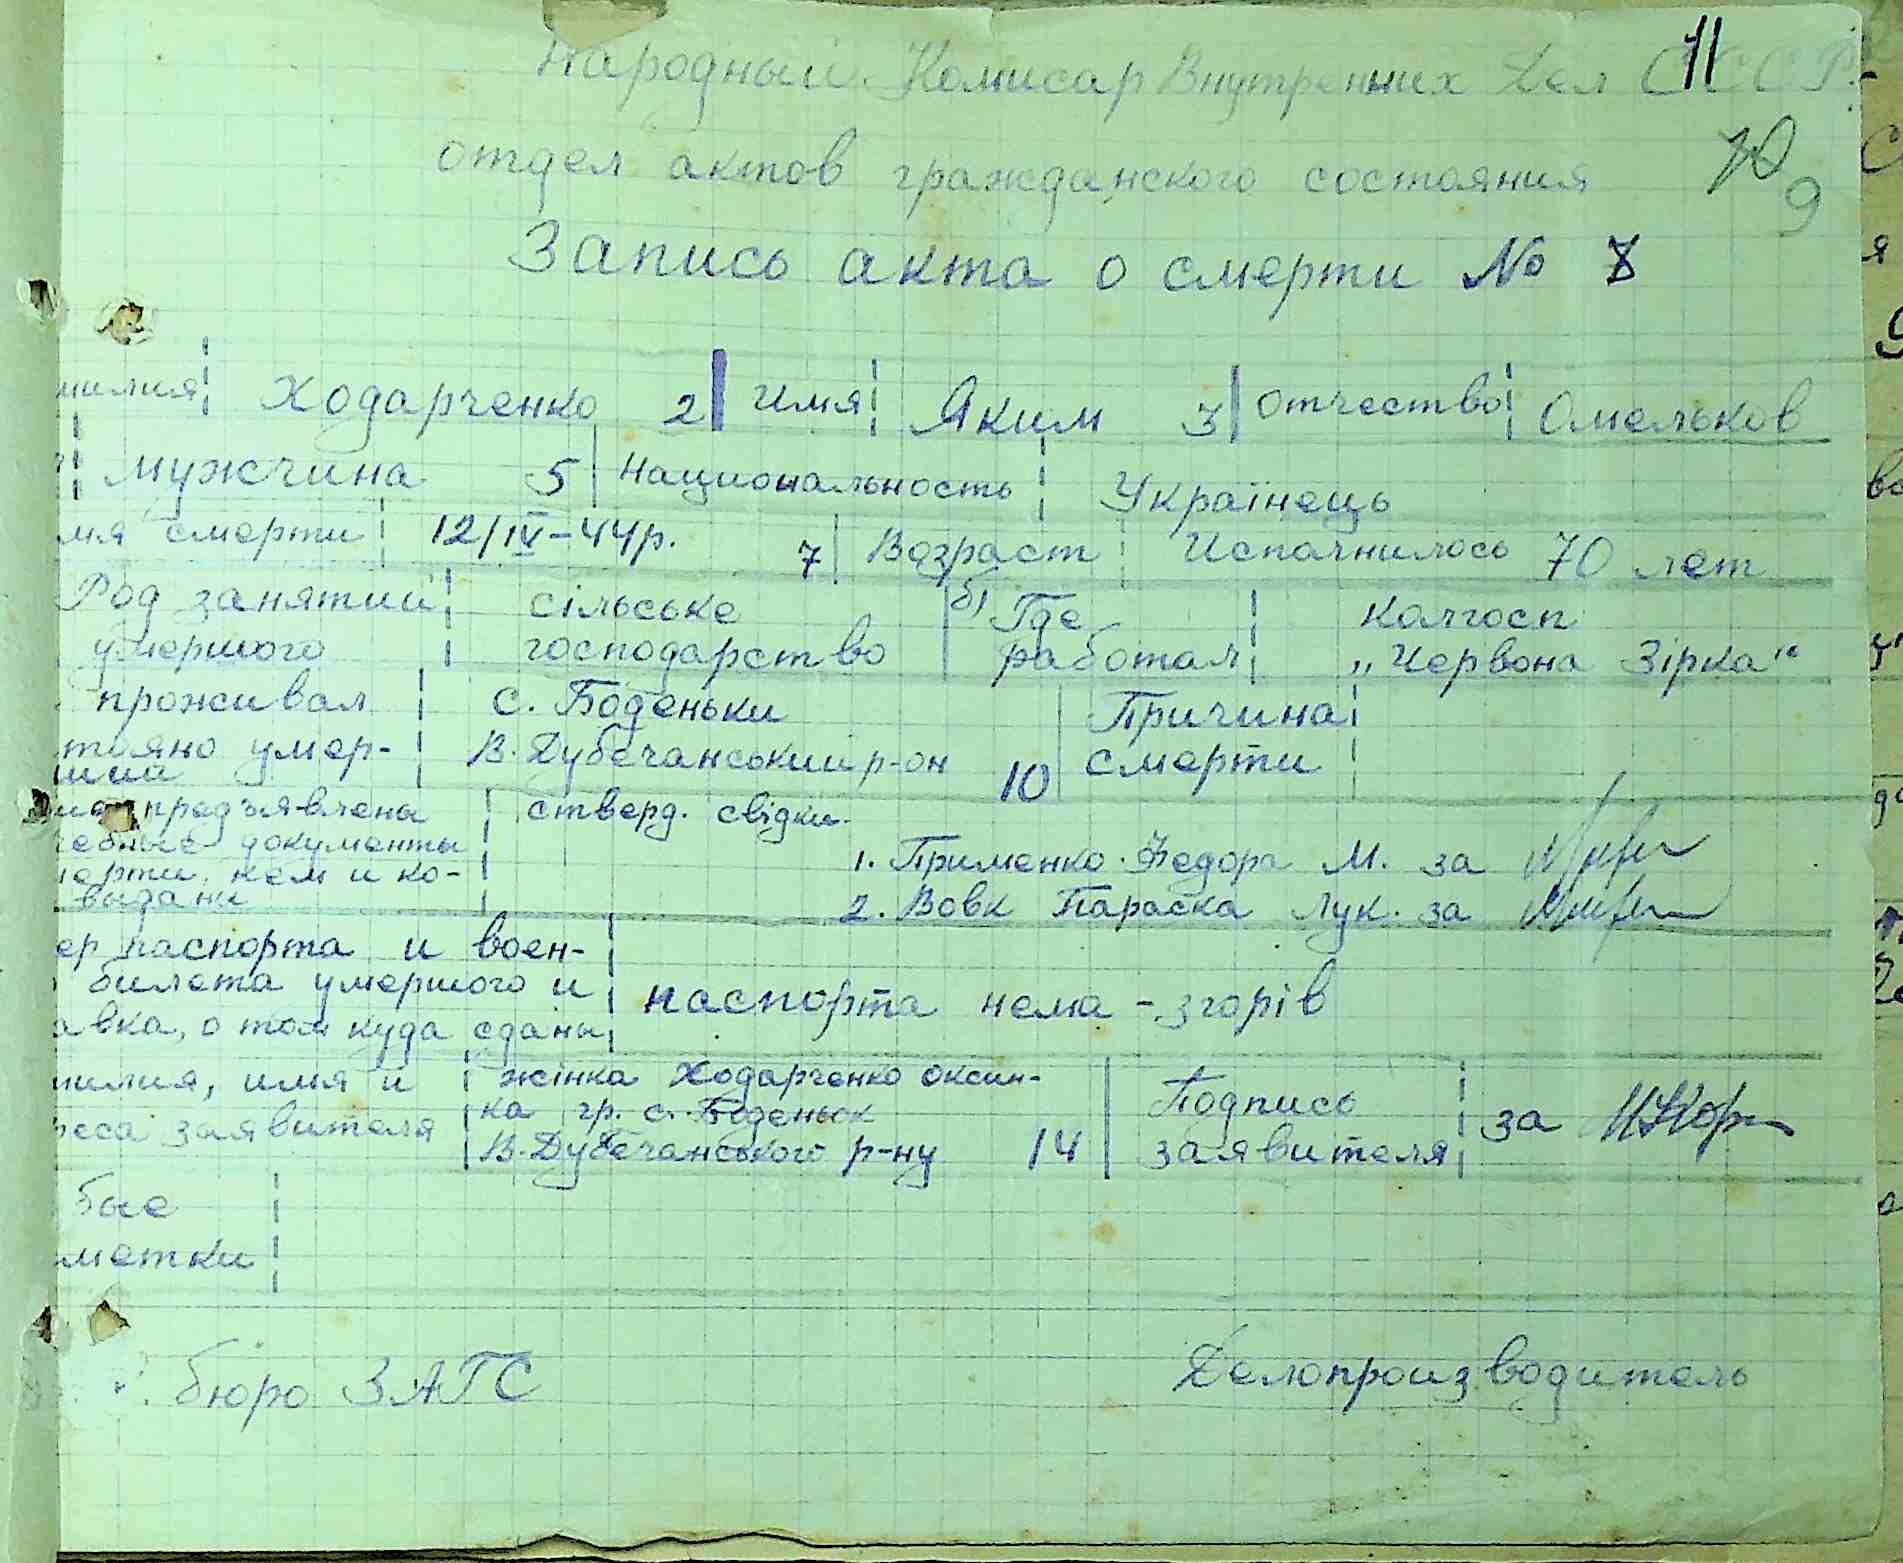 Народный Комисар Внутренних Дел СССР.
11
отдел актов гражданского состояния
9
Запись акта о смерти №
милия Ходарченко 2 Имя Яким 3 Отчество Омельков
мужчина 5 Национальность Українець
мя смерти 12/IV-44р. 7 Возраст Исполнилось 70 лет
Род занятий умершого сільське господарство б) Где работал колгосп „Червона Зірка"
проживал тояно умер- ший С. Боденьки В. Дубечанський р-он 10 Причина смерти
предъявлены чебные документы мерти, кем и ко- выданы стверд. свідки.
1. Применко Федора М. за
2. Вовк Параска Лук. за
ер паспорта и воен- билета умершого и авка, о том куда сданы паспорта нема - згорів
милия, имя и реса заявителя жінка Ходарченко Оксин- ка гр. с. Боденьок В. Дубечанського р-ну 14 Подпись заявителя за
бые
метки
бюро ЗАГС Делопроизводитель